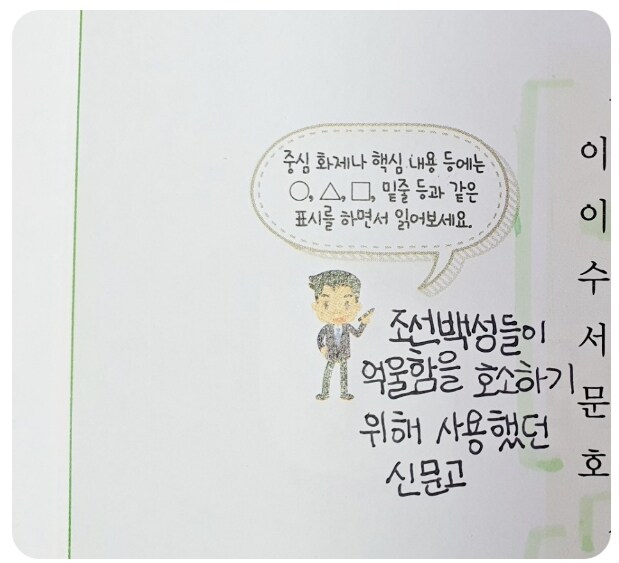 중심 화제나 핵심 내용 등에는
○, △, □, 밑줄 등과 같은
표시를 하면서 읽어보세요.
조선백성들이
억울함을 호소하기
위해 사용했던
신문고
이
이
수
서
문
호